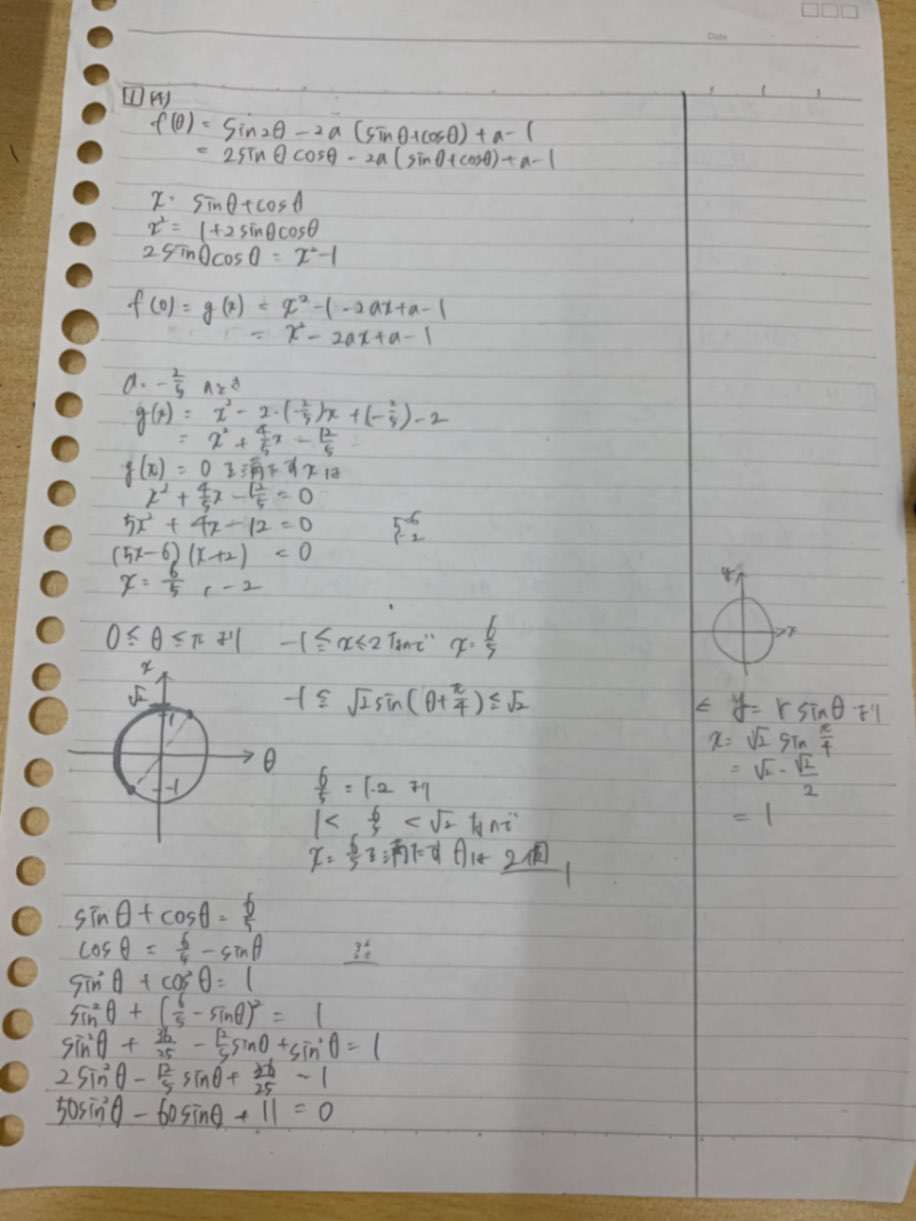 Date
1 (4)
f(θ) = sin2θ - 2a (sinθ+cosθ) + a - 1
= 2sinθcosθ - 2a(sinθ+cosθ) + a - 1
x = sinθ+cosθ
x² = 1+2sinθcosθ
2sinθcosθ = x²-1
f(θ) = g(x) = x² - 1 - 2ax + a - 1
= x² - 2ax + a - 1
a = -2/5 のとき
g(x) = x² - 2・(-2/5)x + (-2/5) - 2
= x² + 4/5x - 12/5
g(x) = 0 を満たすxは
x² + 4/5x - 12/5 = 0
5x² + 4x - 12 = 0
(5x-6)(x+2) = 0
x = 6/5, -2
0 ≤ θ ≤ π より -1 ≤ x ≤ 2 なので x = 6/5
y
x
x
√2
1
-1
θ
-1 ≤ √2 sin(θ+π/4) ≤ √2
← y = r sinθ より
x = √2 sin π/4
= √2・√2/2
= 1
6/5 = 1.2 より
1 < 6/5 < √2 なので
x = 6/5 を満たす θは 2個
sinθ + cosθ = 6/5
cosθ = 6/5 - sinθ
sin²θ + cos²θ = 1
sin²θ + (6/5 - sinθ)² = 1
sin²θ + 36/25 - 12/5 sinθ + sin²θ = 1
2sin²θ - 12/5 sinθ + 36/25 - 1
50sin²θ - 60sinθ + 11 = 0